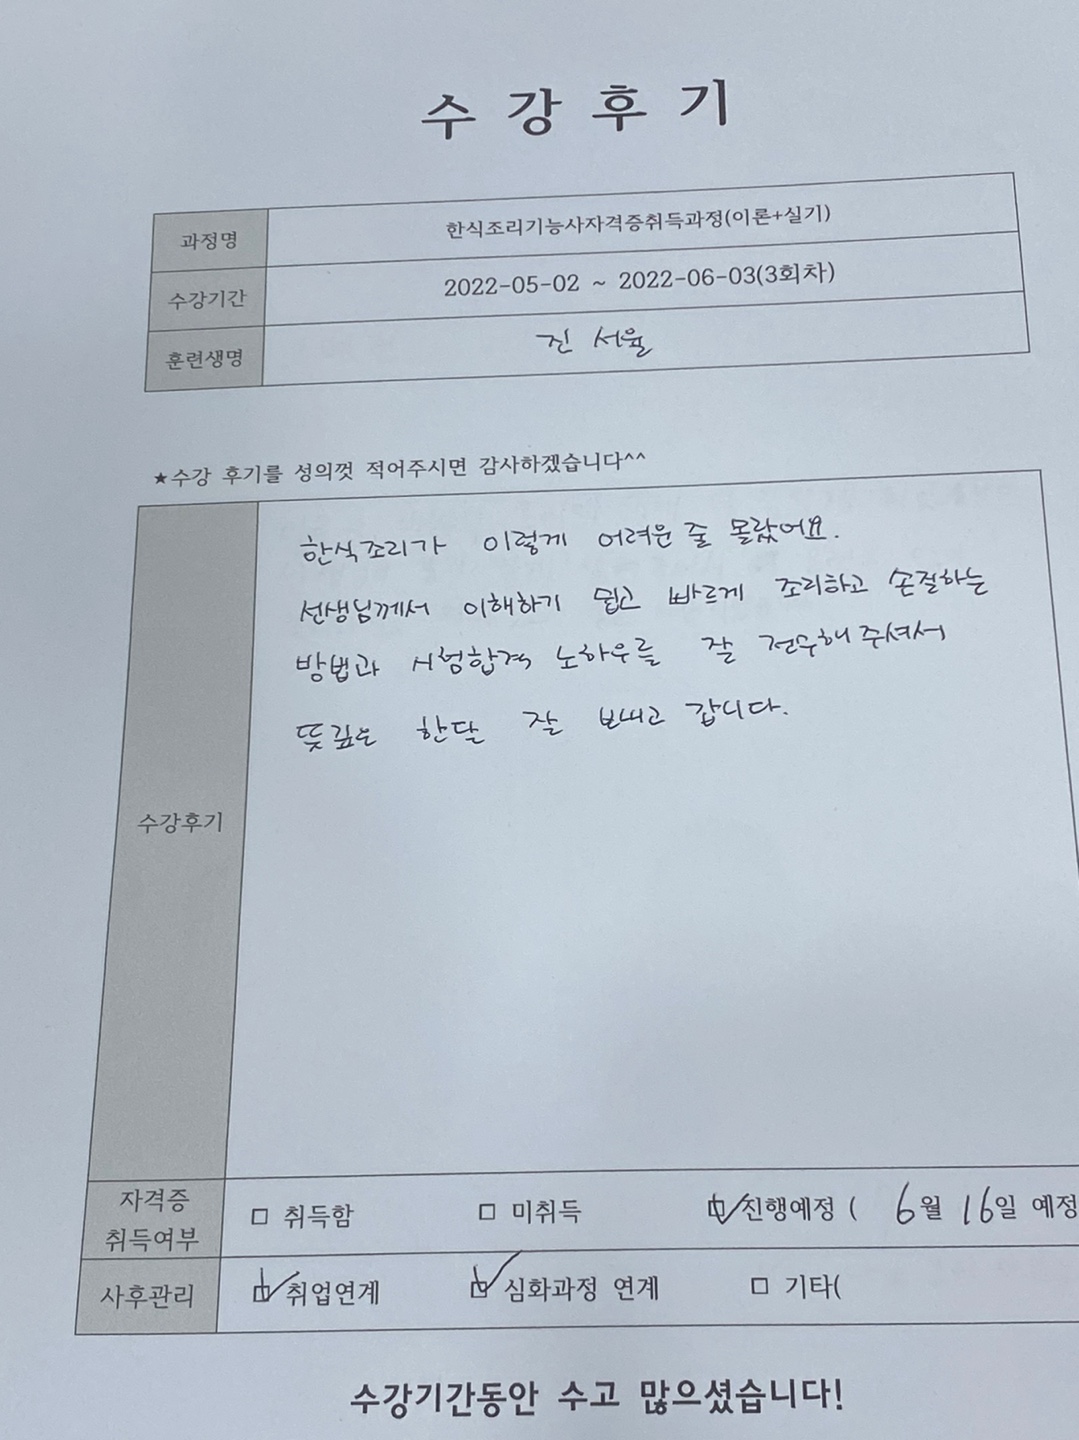 수강후기
과정명 한식조리기능사자격증취득과정(이론+실기)
수강기간 2022-05-02 ~ 2022-06-03(3회차)
훈련생명 진 서율
★수강 후기를 성의껏 적어주시면 감사하겠습니다^^
한식조리가 이렇게 어려운 줄 몰랐어요.
선생님께서 이해하기 쉽고 빠르게 조리하고 손질하는
방법과 시험합격 노하우를 잘 전수해 주셔서
뜻깊은 한달 잘 보내고 갑니다.
수강후기
자격증 취득여부 □ 취득함 □ 미취득 ☑ 진행예정 ( 6월 16일 예정
사후관리 ☑ 취업연계 ☑ 심화과정 연계 □ 기타(
수강기간동안 수고 많으셨습니다!